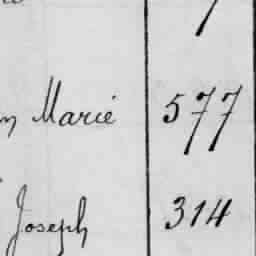 Marie 577
Joseph 314